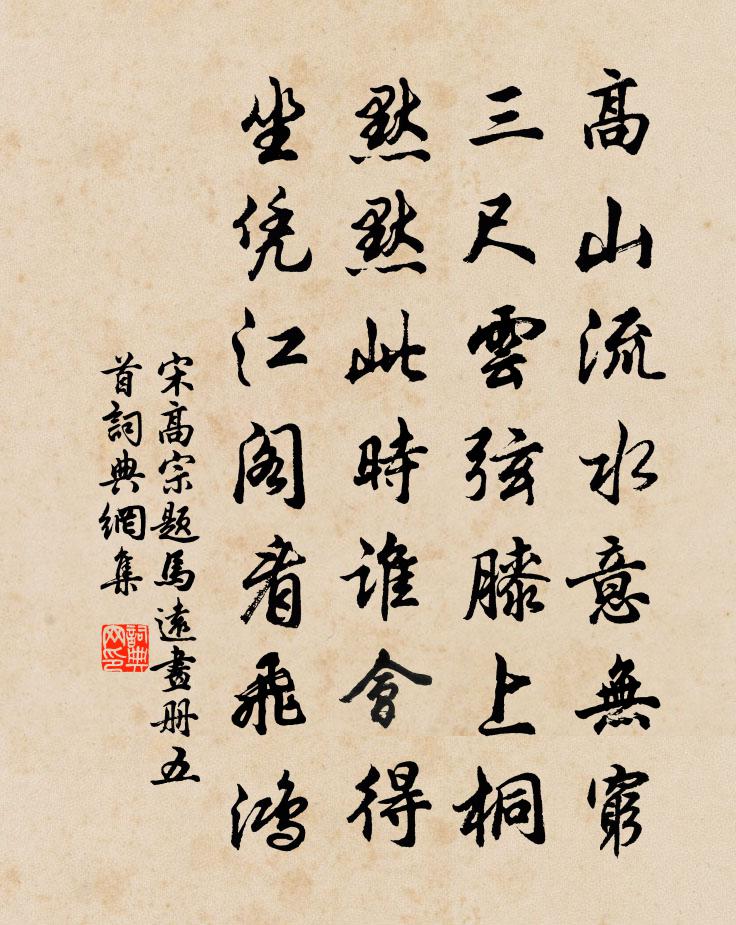 高山流水意無窮
三尺雲弦膝上桐
默默此時誰會得
坐凭江阁看飛鴻
宋高宗题馬遠畫册五
首詞典網集
詞典
网印